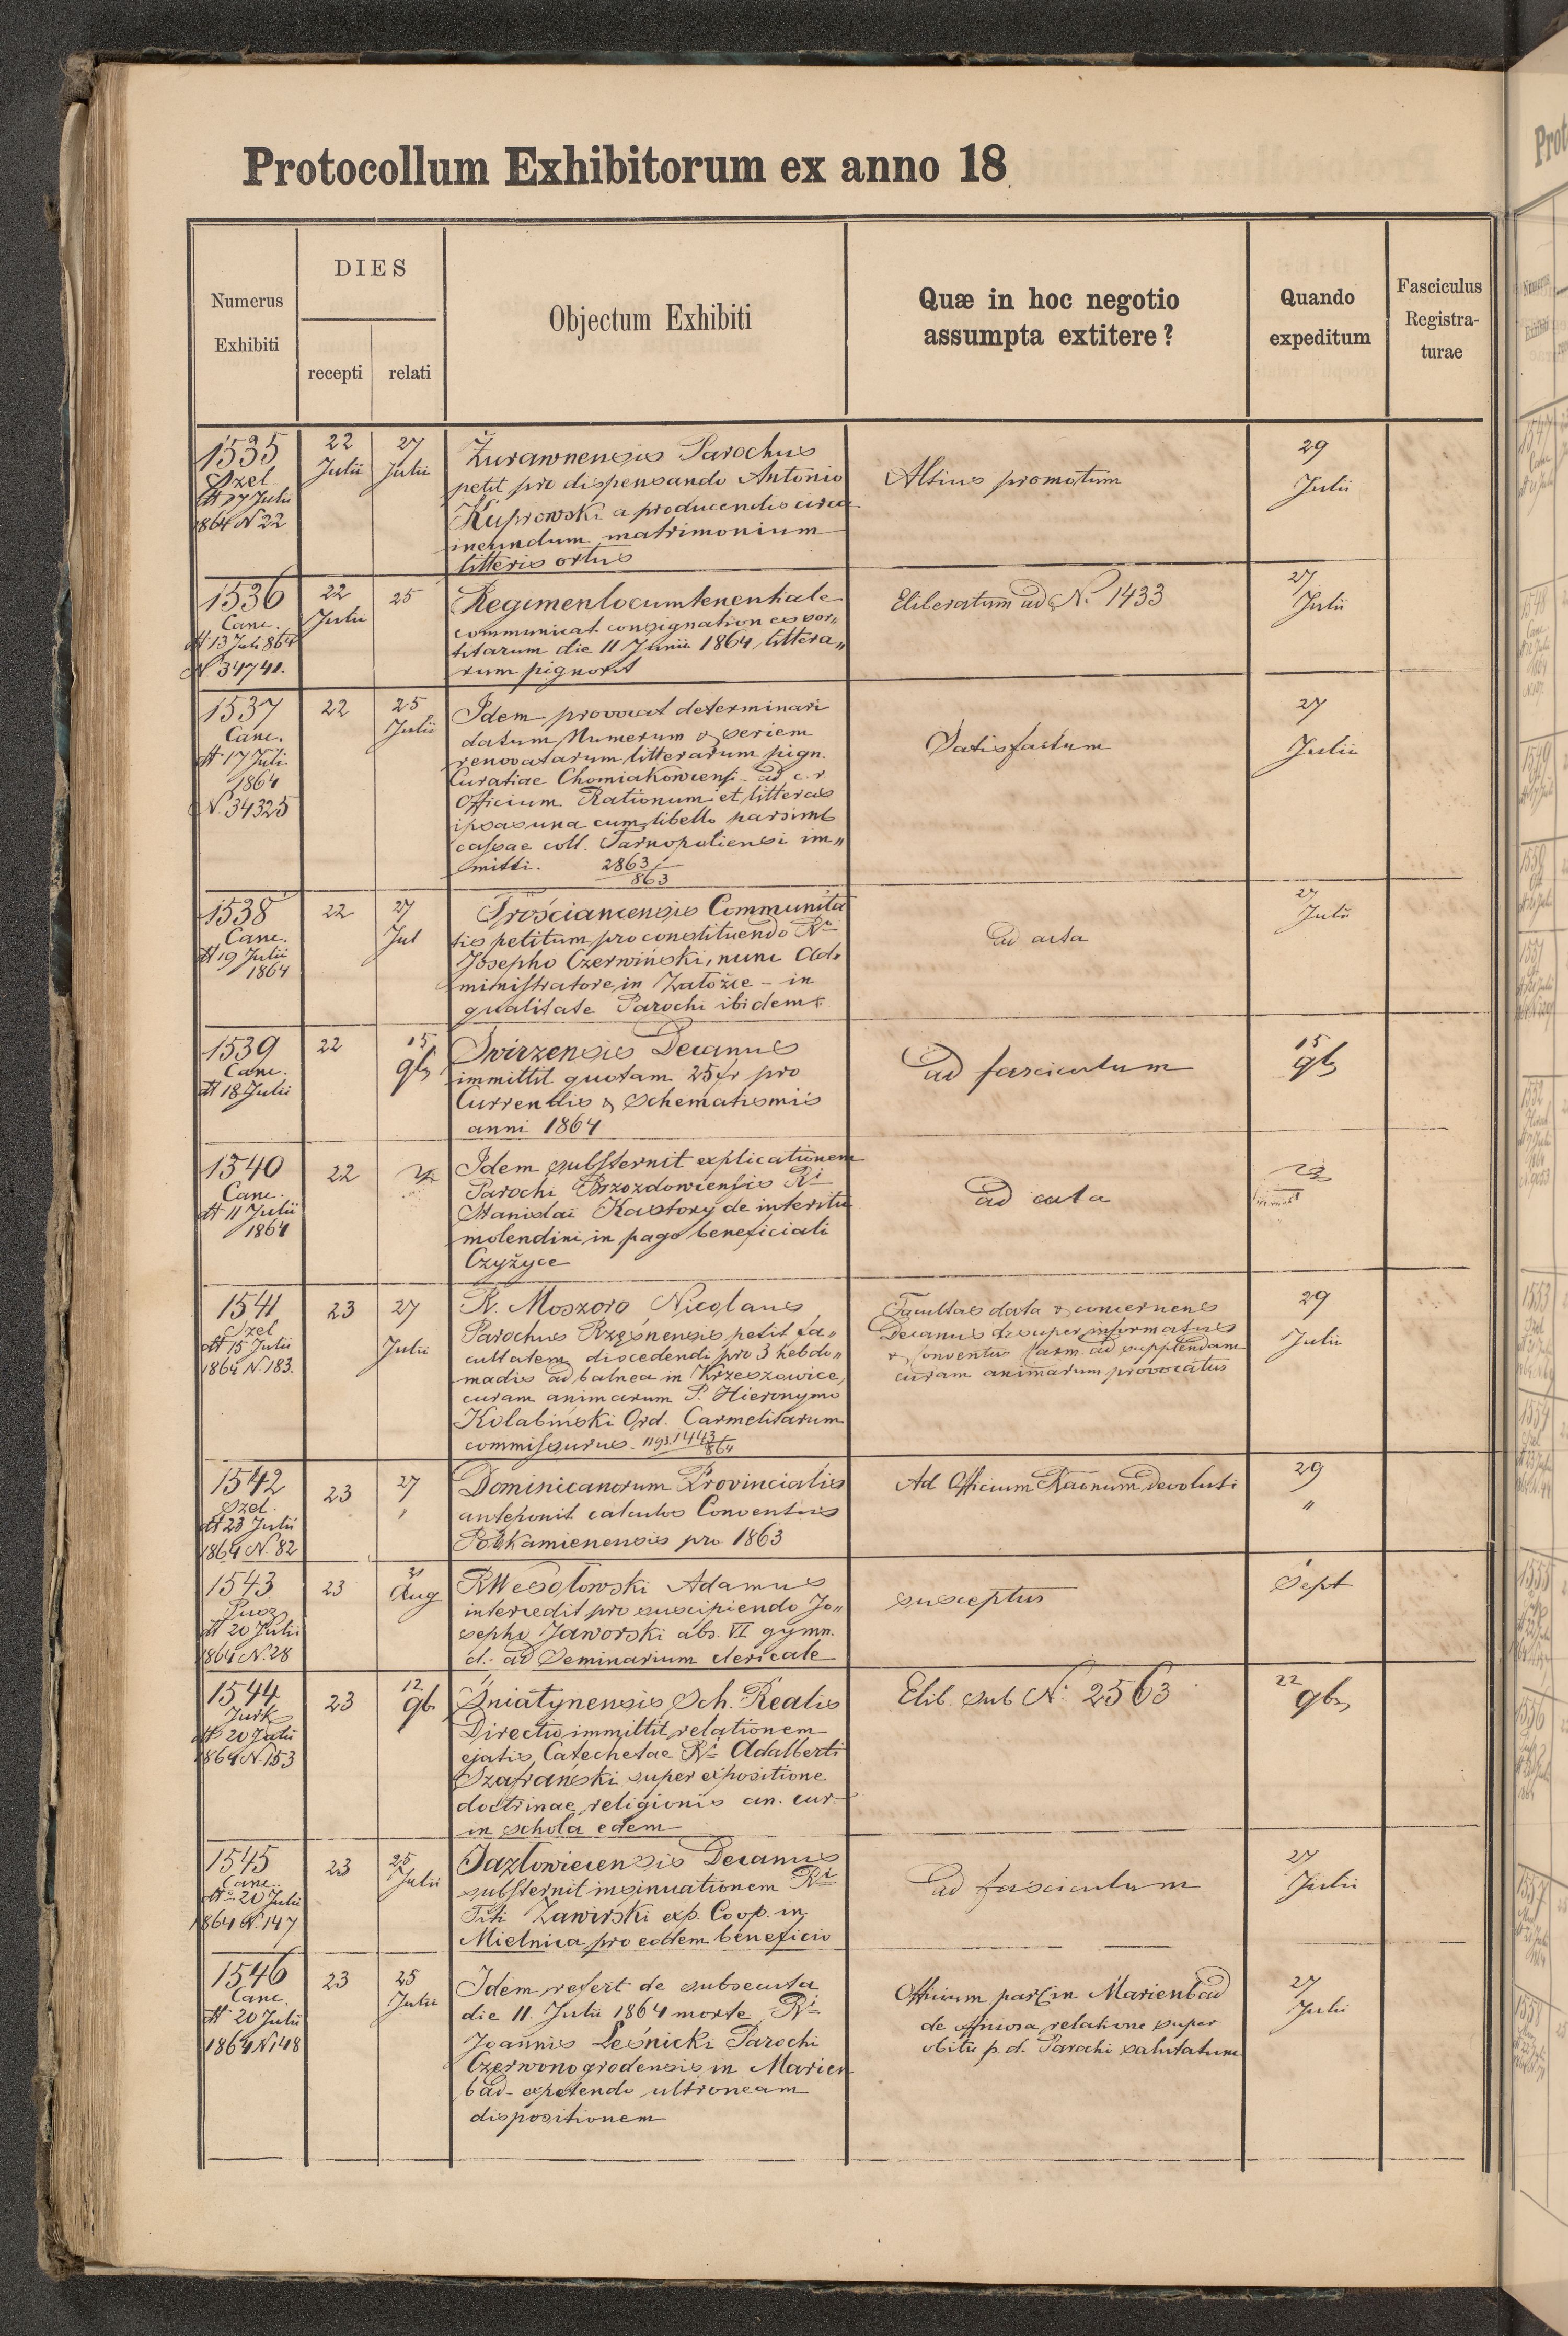 Protocollum Exhibitorum ex anno 18
Numerus
Exhibiti
DIES
recepti
relati
Objectum Exhibiti
Quæ in hoc negotio
assumpta extitere?
Quando
expeditum
Fasciculus
Registra-
turae
1535
Szel
dtt 17 Julii
1864 N 22
22
Julii
27
Julii
Żurawnensis Parochus
petit pro dispensando Antonio
Kuprowski a producendis circa
ineundum matrimonium
litteris ortus
Altius promotum
29
Julii
1536
Canc.
dtt 13 Juli 864
N. 34741.
22
Julii
25
Regimen locumtenentiale
communicat consignationes sor„
titarum die 11 Junii 1864 littera„
rum pignorat
Eliberatum ad N. 1433
27
Julii
1537
Canc.
dtt 17 Juli
1864
N. 34325
22
25
Julii
Idem provocat determinari
datum, Numerum & seriem
renovatarum litterarum pign.
Curatiae Chomiakowiensi ad c. r
Officium Rationum et litteras
ipsas una cum libello parsimt
cassae coll. Tarnopoliensi im„
mitti. 2863/
863
Satisfactum
27
Julii
1538
Canc.
dtt 19 Julii
1864
22
27
Jul
Trościancensis Communita
tis petitum pro constituendo Ro
Josepho Czerwiński, nunc Ad„
ministratore in Załoźce – in
qualitate Parochi ibidem
ad acta
27
Julii
1539
Canc.
dtt 18 Julii
22
15
9b
Swirzensis Decanus
immittit quotam 25 fr pro
Currendis & Schematismis
anni 1864
ad fasciculum
15
9b
1540
Canc.
dtt 11 Julii
1864
22
Idem substernit explicationem
Parochi Brzozdowiensis Ri
Stanislai Kastory de interitu
molendini in pago beneficiali
Czyżyce
ad acta
1541
Szel
dtt 15 Julii
1864 N. 183.
23
27
Julii
R. Moszoro Nicolaus
Parochus Rzęśnensis petit fa„
cultatem discedendi pro 3 hebdo„
madis ad balnea in Krzeszowice,
curam animarum P. Hieronymo
Kolabiński Ord. Carmelitarum
commissurus. 1443/
864
Facultas data & concernens
Decanus desuper informatus
& Conventus Carm. ad supplendam
curam animarum provocatus
29
Julii
1542
Szel
dtt 23 Julii
1864 N. 82
23
27
„
Dominicanorum Provincialis
anteponit calculos Conventus
Podkamienensis pro 1863
Ad Officium Raonum devoluti
29
„
1543
Pusz
dtt 20 Julii
1864 N. 28
23
31
Aug
R Wesołowski Adamus
intercedit pro suscipiendo Jo„
sepho Jaworski abs. VI gymn.
cl. ad Seminarium clericale
susceptus
Sept
1544
Jurk
dtt 20 Julii
1864 N 153
23
12
9b.
Śniatynensis Sch. Realis
Directio immittit relationem
ejatis Catechetae Ri Adalberti
Szafrański super expositione
doctrinae religionis an. cur.
in schola edem
Elib. sub N. 2563
22
9b
1545
Canc.
dtto 20 Julii
1864 N. 147
23
25
Julii
Jazłowiecensis Decanus
substernit insinuationem Ri
Titi Zawirski exp. Coop. in
Mielnica pro eodem beneficio
ad fasciculum
27
Julii
1546
Canc.
dtt 20 Julii
1864 N 148
23
25
Julii
Idem refert de subsecuta
die 11. Julii 1864 morte Ri
Joannis Leśnicki Parochi
Czerwonogrodensis in Marien
bad – expetendo ultroneam
dispositionem
Officium par. in Marienbad
de officiosa relatione super
obitu p. d. Parochi salutatum
27
Julii